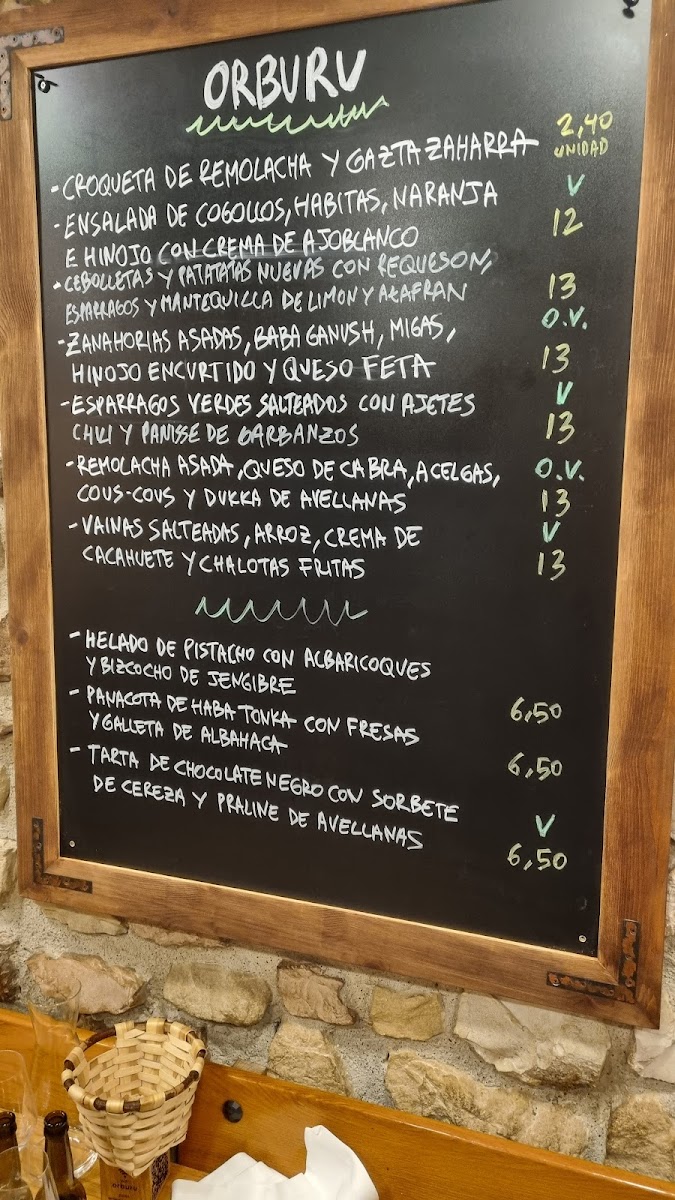 ORBURU
- CROQUETA DE REMOLACHA Y GAZTA ZAHARRA 2,40 UNIDAD
- ENSALADA DE COGOLLOS, HABITAS, NARANJA V
E HINOJO CON CREMA DE AJOBLANCO 12
- CEBOLLETAS Y PATATATAS NUEVAS CON REQUESON,
ESPARRAGOS Y MANTEQUILLA DE LIMON Y AZAFRAN 13
O.V.
- ZANAHORIAS ASADAS, BABA GANUSH, MIGAS,
HINOJO ENCURTIDO Y QUESO FETA 13
- ESPARRAGOS VERDES SALTEADOS CON AJETES V
CHILI Y PANISSE DE GARBANZOS 13
- REMOLACHA ASADA, QUESO DE CABRA, ACELGAS, O.V.
COUS-COUS Y DUKKA DE AVELLANAS 13
- VAINAS SALTEADAS, ARROZ, CREMA DE V
CACAHUETE Y CHALOTAS FRITAS 13
- HELADO DE PISTACHO CON ALBARICOQUES
Y BIZCOCHO DE JENGIBRE 6,50
- PANACOTA DE HABA TONKA CON FRESAS
Y GALLETA DE ALBAHACA 6,50
- TARTA DE CHOCOLATE NEGRO CON SORBETE V
DE CEREZA Y PRALINE DE AVELLANAS 6,50
orburu